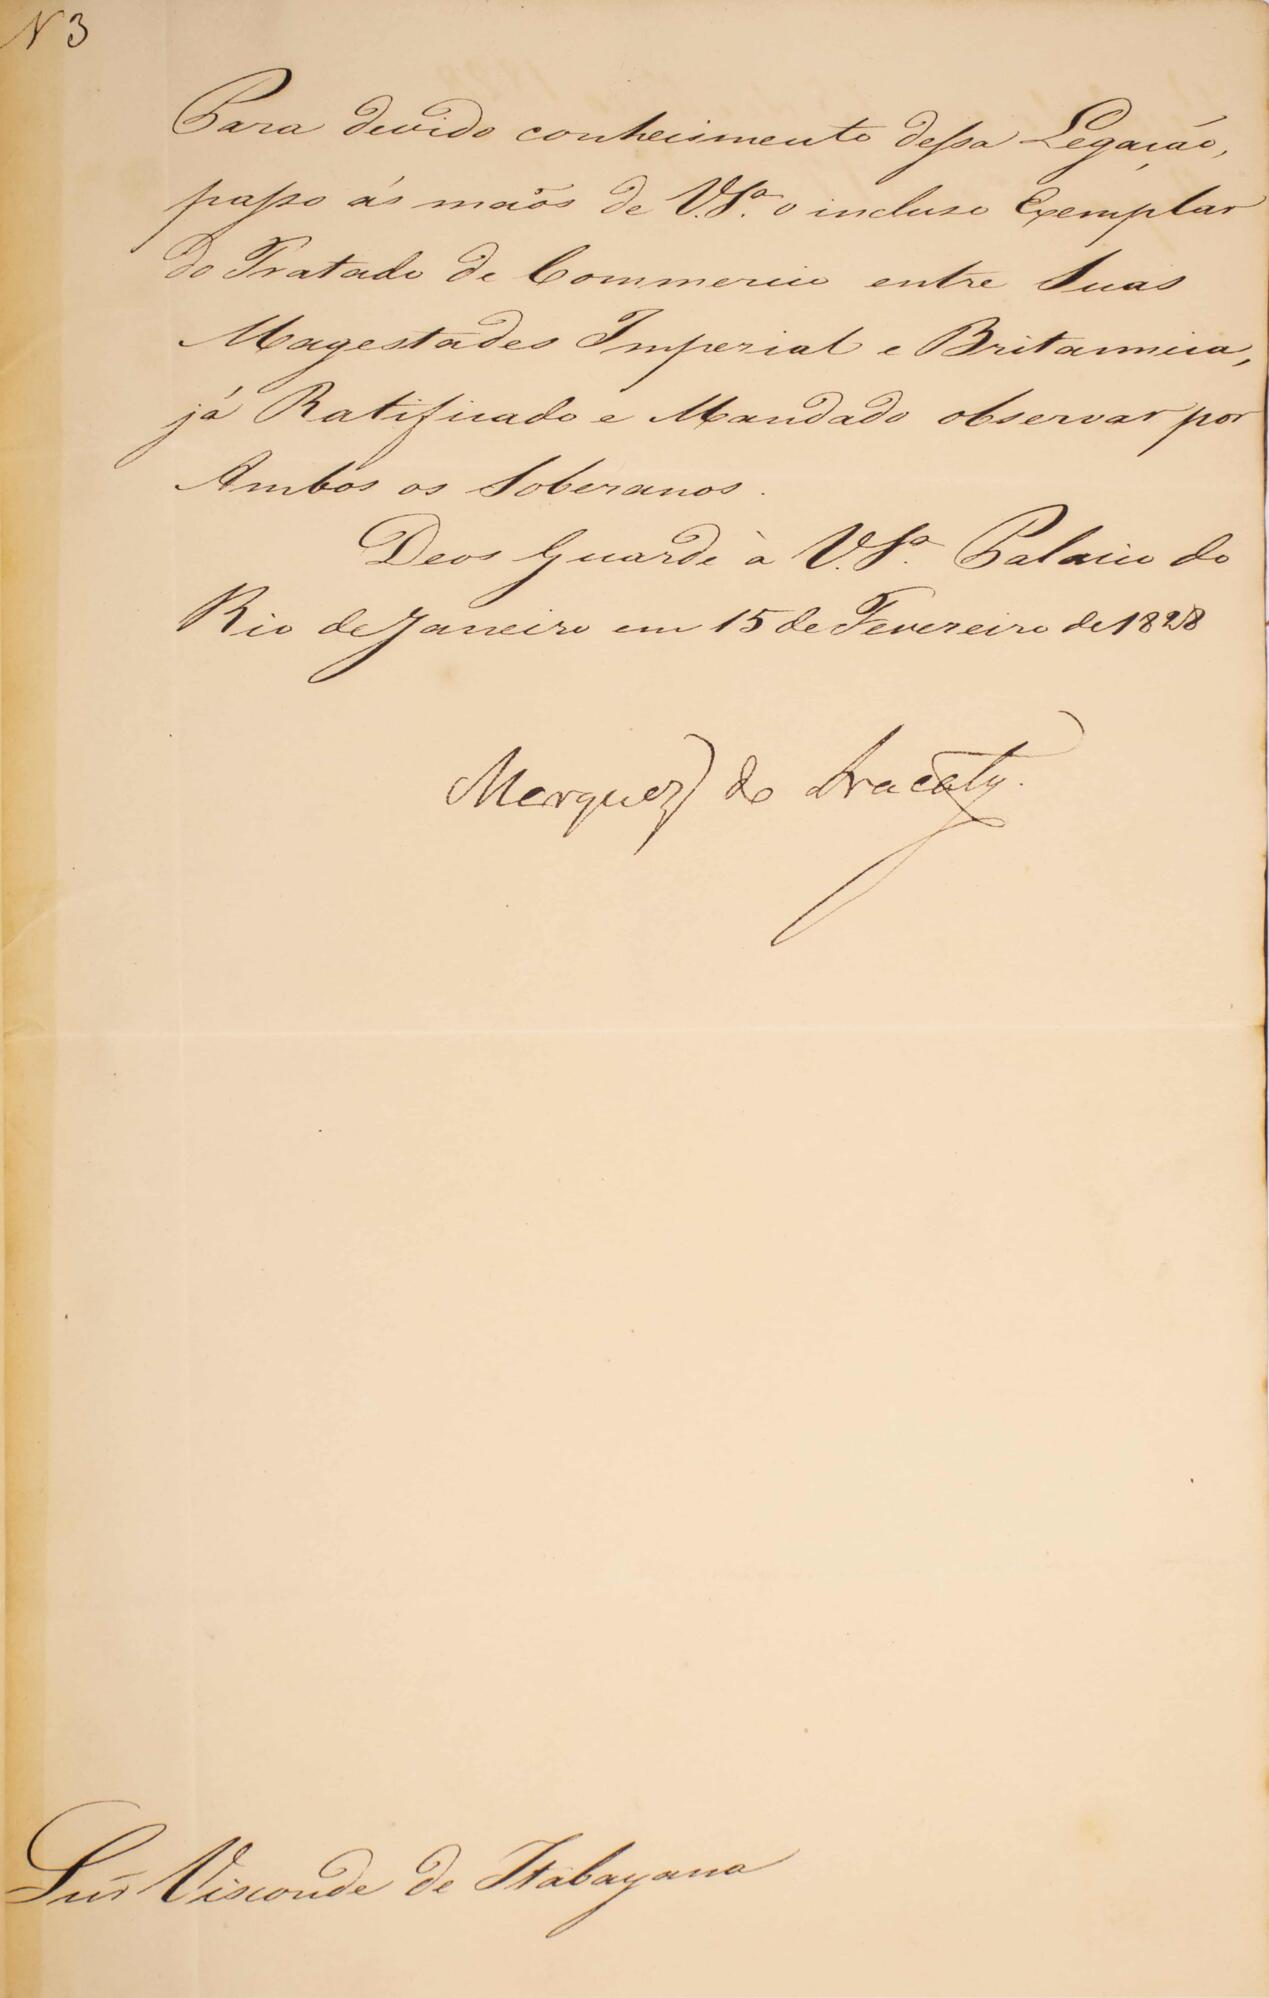 N 3
Para devido conhecimento dessa Legação,
passo ás maõs de V.Sª. o incluso Exemplar
do Tratado de Commercio entre Suas
Magestades Imperial e Britannica,
já Ratificado e Mandado observar por
Ambos os Soberanos.
Deos Guarde à V.Sª. Palacio do
Rio de Janeiro em 15 de Fevereiro de 1828
Marquez de Aracaty.
Snr Visconde de Itabayana